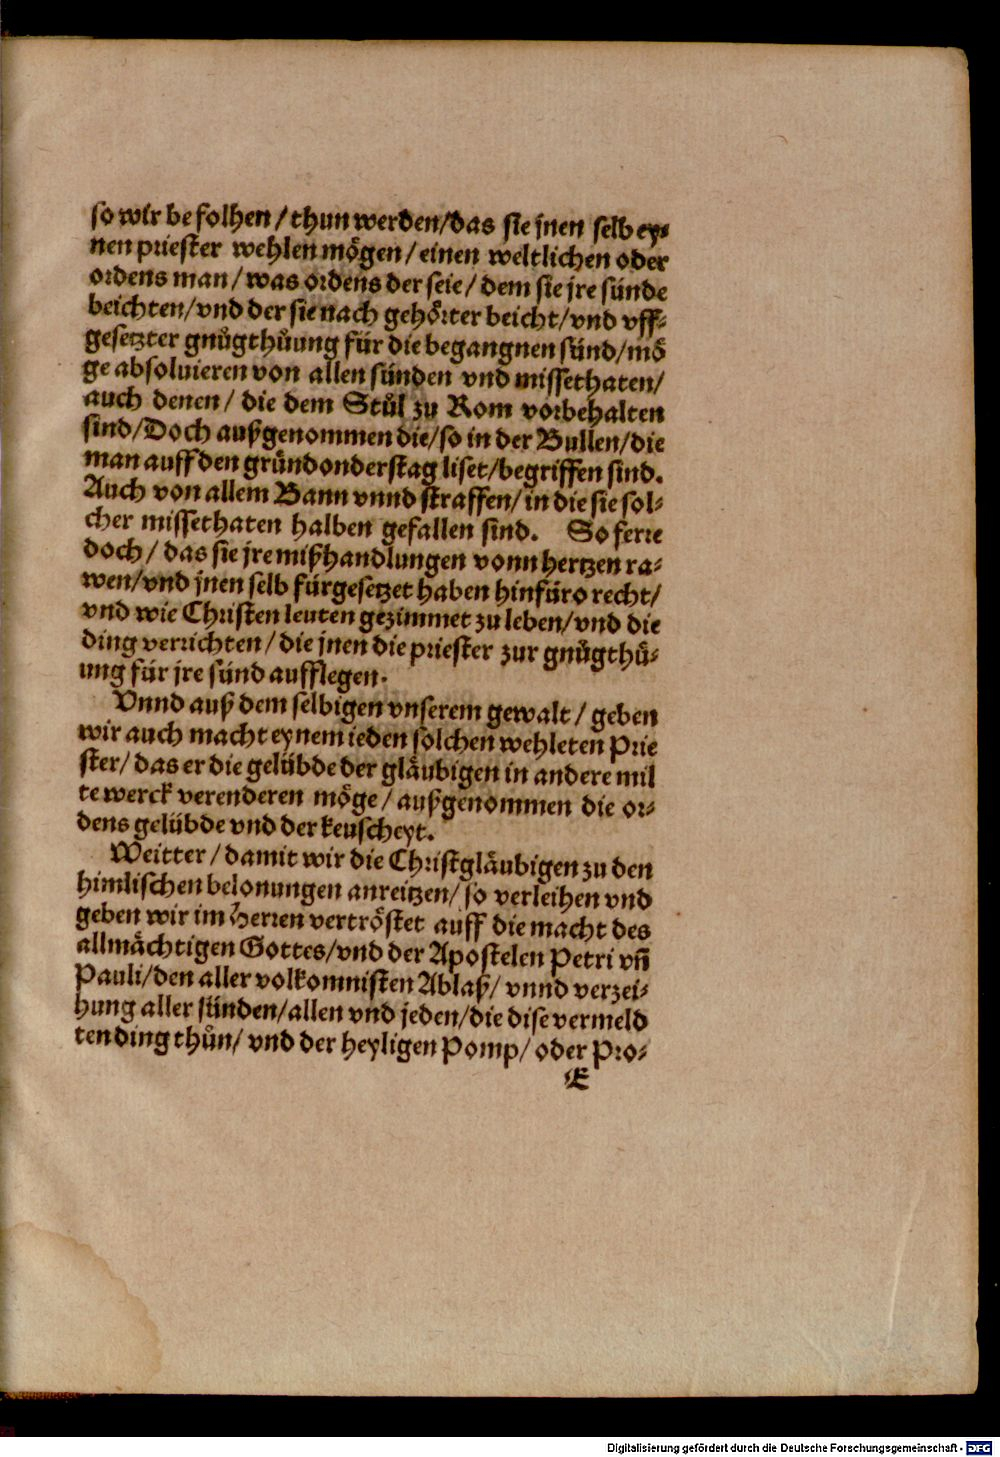 so wir befolhen / thun werden/das sie jnen selb ey⸗
nen priester wehlen mögen / einen weltlichen oder
ordens man / was ordens der seie / dem sie jre sünde
beichten/vnd der sie nach gehörter beicht/vnd vff⸗
gesetzter gnůgthůung für die begangnen sünd/mö
ge absoluieren von allen sünden vnd missethaten/
auch denen / die dem Stůl zu Rom vorbehalten
sind/Doch außgenommen die/so in der Bullen/die
man auff den gründonderstag liset/begriffen sind.
Auch von allem Bann vnnd straffen/ in die sie sol⸗
cher missethaten halben gefallen sind. So ferre
doch / das sie jre mißhandlungen vonn hertzen ra⸗
wen/vnd jnen selb fürgesetzet haben hinfüro recht/
vnd wie Christen leuten gezimmet zu leben/vnd die
ding verrichten / die jnen die priester zur gnůgthů⸗
ung für jre sünd aufflegen.
Vnnd auß dem selbigen vnserem gewalt / geben
wir auch macht eynem ieden solchen wehleten Prie
ster/ das er die gelübde der gläubigen in andere mil
te werck verenderen möge / außgenommen die or⸗
dens gelübde vnd der keuscheyt.
Weitter / damit wir die Christgläubigen zu den
himlischen belonungen anreitzen/ so verleihen vnd
geben wir im Herren vertröstet auff die macht des
allmächtigen Gottes/vnd der Apostelen Petri vñ
Pauli/den aller volkomnisten Ablaß/ vnnd verzei⸗
hung aller sünden/allen vnd jeden/die dise vermeld
ten ding thůn/ vnd der heyligen Pomp/ oder Pro⸗
E
Digitalisierung gefördert durch die Deutsche Forschungsgemeinschaft - DFG